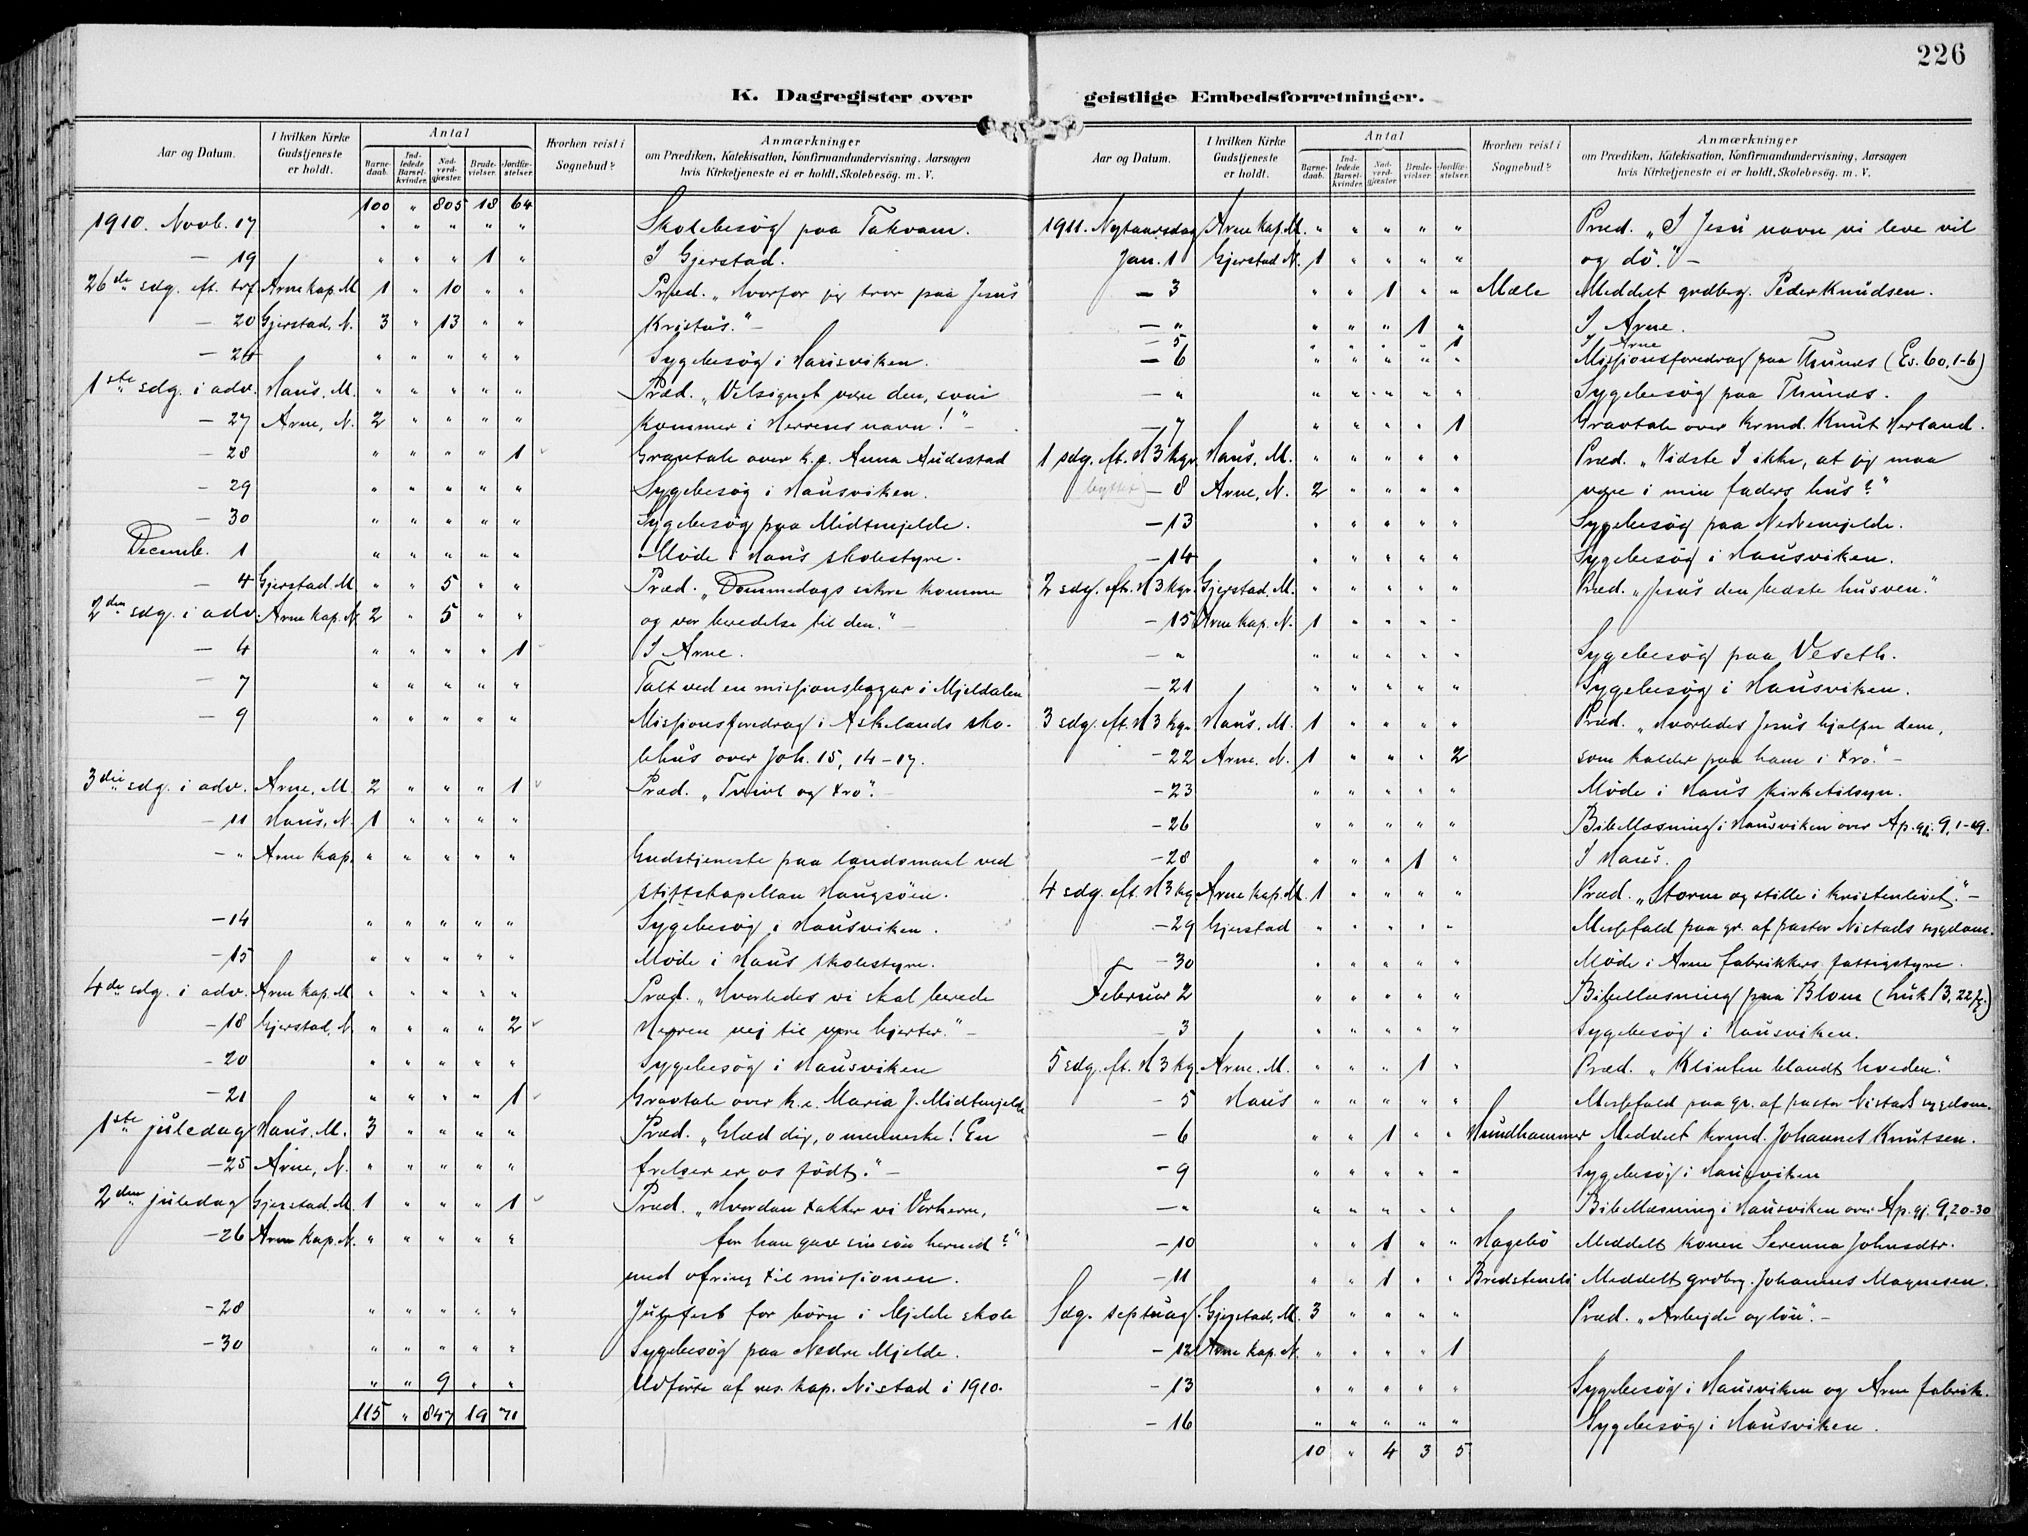 226
K. Dagregister over geistlige Embedsforretninger.
Aar og Datum. I hvilken Kirke Gudstjeneste er holdt. Antal Barnedaab. Indledede Barselkvinder. Nadverdgjæster. Brudevielser. Jordfæstelser. Hvorhen reist i Sognebud? Anmærkninger om Prædiken, Katekisation, Konfirmandundervisning, Aarsagen hvis Kirketjeneste ei er holdt, Skolebesøg. m. V.
100 " 805 18 64
1910. Novb. 17 " " " " " Skolebesøg paa Takvam.
— 19 " " " 1 " I Gjerstad.
26de sdg. eft. trf Arne kap. M 1 " 10 " " Præd. „Hvorfor jeg tror paa Jesus
— 20 Gjerstad, N. 3 " 13 " " Kristus." —
— 26 " " " " " Sygebesøg i Hausviken.
1ste sdg. i adv. Haus, M. " " " " " Præd. „Velsignet være den, som
— 27 Arne, N. 2 " " " " kommer i Herrens navn!" —
— 28 " " " " 1 Gravtale over k.e. Anna Audestad
— 29 " " " " " Sygebesøg i Hausviken.
— 30 " " " " " Sygebesøg paa Midtmjelde.
Decemb. 1 " " " " " Møde i Haus skolestyre.
— 4 Gjerstad M. " " 5 " " Præd. „Dommedags sikre komme
2den sdg. i adv. Arne kap. N 2 " 5 " " og vor beredelse til den." —
— 4 " " " " 1 I Arne.
— 7 " " " " " Talt ved en missionsbazar i Mjeldalen
— 9 " " " " " Missionsforedrag i Askelands sko-
lehus over Joh. 15, 14-17.
3die sdg. i adv. Arne, M. 2 " " " 1 Præd. „Tvivl og tro". —
— 11 Haus, N. 1 " " " "
— " Arne kap. " " " " " Gudstjeneste paa landsmaal ved
stiftskapellan Haugsøen.
— 14 " " " " " Sygebesøg i Hausviken.
— 15 " " " " " Møde i Haus skolestyre.
4de sdg. i adv. Arne kap. M. " " " " " Præd. „Hvorledes vi skal berede
— 18 Gjerstad, N. " " " " 2 Herren vej til vore hjerter." —
— 20 " " " " " Sygebesøg i Hausviken
— 21 " " " " 1 Gravtale over k.e. Maria J. Midtmjelde
1ste juledag Haus, M. 3 " " " " Præd. „Glæd dig, o menneske! En
— 25 Arne, N. " " " " " frelser er os født." —
2den juledag Gjerstad, M. 1 " " " 1 Præd. „Hvordan takker vi Vorherre,
— 26 Arne kap. N. " " " " " for han gav sin søn herned?"
med ofring til missionen.
— 28 " " " " " Julefest for børn i Mjelde skole
— 30 " " " " " Sygebesøg paa Nedre Mjelde.
" " 9 " " Udførte af res. kap. Nistad i 1910.
115 " 847 19 71
Aar og Datum. I hvilken Kirke Gudstjeneste er holdt. Antal Barnedaab. Indledede Barselkvinder. Nadverdgjæster. Brudevielser. Jordfæstelser. Hvorhen reist i Sognebud? Anmærkninger om Prædiken, Katekisation, Konfirmandundervisning, Aarsagen hvis Kirketjeneste ei er holdt, Skolebesøg. m. V.
1911. Nytaarsdag Arne kap. M. " " " " " Præd. „I Jesu navn vi leve vil
Jan. 1 Gjerstad N. 1 " " " " og dø." —
— 3 " " 1 " " Mæle Meddelt grdbrg. Peder Knudsen.
— " " " " 1 " I Arne.
— 5 " " " " 1 I Arne
— 6 " " " " " Missionsforedrag paa Thunes (Es. 60, 1-6)
— " " " " " " Sygebesøg paa Thunes.
— 7 " " " " 1 Gravtale over krmd. Knut Herland.
1 sdg. eft. H3kgr. Haus, M. " " " " " Præd. „Vidste I ikke, at jeg maa
— 8 Arne, N. 2 " " " " være i min faders hus?"
— 13 " " " " " Sygebesøg paa Nedremjelde.
— 14 " " " " " Sygebesøg i Hausviken.
2 sdg. eft. H3kgr. Gjerstad, M. " " " " " Præd. „Jesus den bedste husven."
— 15 Arne kap. N. 1 " " " "
— " " " " " " Sygebesøg paa Veseth.
— 21 " " " " " Sygebesøg i Hausviken.
3 sdg. eft. H3kgr. Haus, M. 1 " " " " Præd. „Hvorledes Jesus hjælper dem,
— 22 Arne. N. 1 " " " 2 som kalder paa ham i tro." —
— 23 " " " " " Møde i Haus kirketilsyn.
— 26 " " " " " Bibellæsning i Hausviken over Ap. gj. 9, 1-19.
— 28 " " " 1 " I Haus.
4 sdg. eft. H3kg. Arne kap. M. 1 " " " " Præd. „Storm og stille i kristenlivet." —
— 29 Gjerstad " " " " " Messefald paa gr. af pastor Nistads sygdom.
— 30 " " " " " Møde i Arne fabrikkers fattigstyre.
Februar 2 " " " " " Bibellæsning paa Blom (Luk 13, 22 f.)
— 3 " " " " " Sygebesøg i Hausviken.
5 sdg. eft. H3kg. Arne. M. " " " 1 " Præd. „Klinten blandt hveden."
— 5 Haus " " " " " Messefald paa gr. af pastor Nistads sygdom.
— 6 " " 1 " " Hundhammer Meddelt krmd. Johannes Knutsen.
— 9 " " " " " Sygebesøg i Hausviken
— " " " " " " Bibellæsning i Hausviken over Ap. gj. 9, 20-30
— 10 " " 1 " " Hagebø Meddelt konen Serenna Johnsdtr.
— 11 " " 1 " " Meddelt grdbrg. Johannes Magnesen.
Sdg. septuag. Gjerstad, M. 3 " " " " Præd. „Arbejde og løn". —
— 12 Arne kap. N. " " " " 1
— 13 " " " " " Sygebesøg i Hausviken og Arne fabrik.
— 16 " " " " " Sygebesøg i Hausviken.
10 " 4 3 5